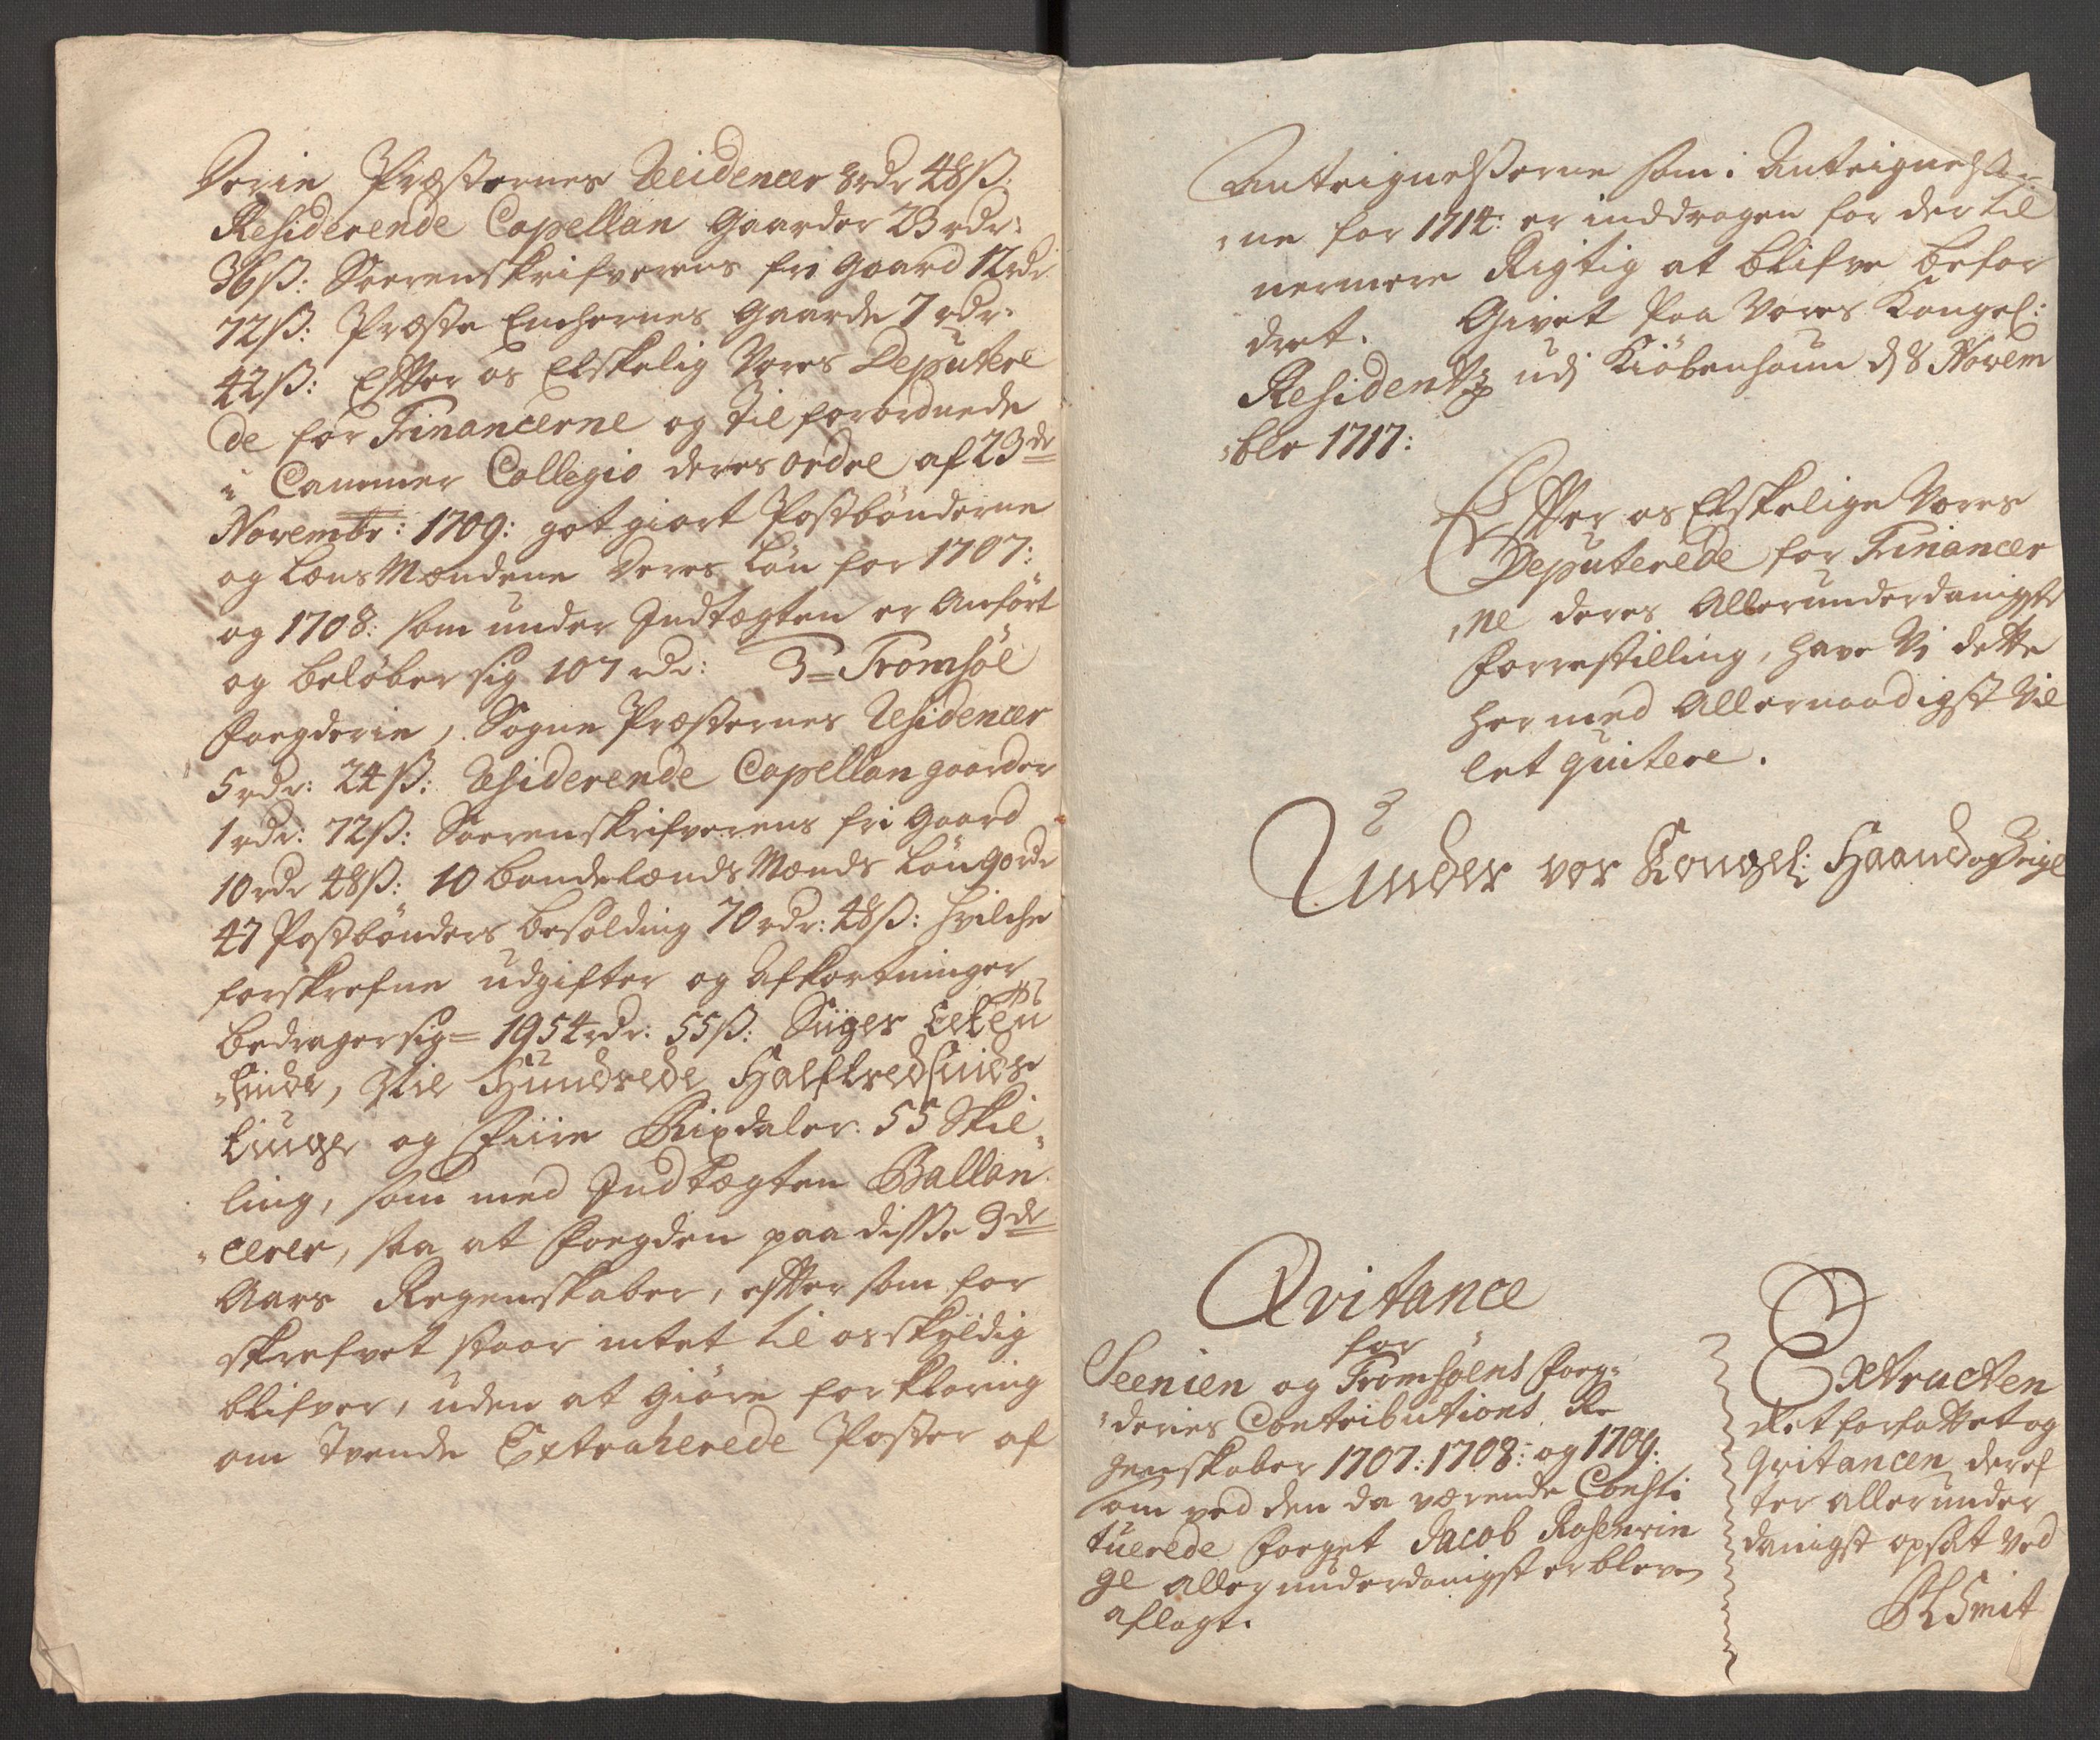 derie Præsternes Residencer 8rdr 48ß:
Residerende Capellan Gaarder 23rdr:
36ß: Sorenskrifverens fri Gaard 12rdr
72ß: Præste Enchernes Gaarde 7 rdr:
42ß: Efter os Elskelig Vores Deputere
de for Financerne og Tilforordnede
i Cammer Collegio deres ordre af 23de
Novembr: 1709: got giort Postbönderne
og LænsMændene deres Lön for 1707:
og 1708: som under Indtægten er Anfört
og beløber sig 107 rdr: 3= Tromsöe
Foegderie, Sogne Præsternes Residencer
5rdr: 24ß: Residerende Capellan gaarder
1rdr: 72ß: Sorenskrifverens fri Gaard
10rdr 48ß: 10 bondelænds Mænds Lön 90rdr
47 Postbönders besolding 70rdr: 48ß: hvilche
forskrefne udgifter og Afkortninger
bedrager sig= 1954rdr: 55ß: Siger Et
sinde, Nie Hundrede Halftredsinds
tiuge og Fiire Rixdaler 55 Skil,
ling, som med Indtægten Ballan
"cerer, saa at Foegden paa disse 3de
Aars Regenskaber, efter som for
skrefvet staar intet til os skyldig
blifver, uden at giöre forklaring
om Tvende Extraherede Poster af
Anteignelserne som i Antegnelser
"ne for 1714: er inddragen for der til
nermere Rigtig at blifve befor
dret. Givet paa Vores Kongel:
Residentz udi Kiöbenhaun d 8 Novem
"ber 1717:
Efter os Elskelige Vores
Deputerede for Financer
"ne deres Allerunderdanigste
Forrestilling, have Vi dette
hermed Allernaadigst Vil
let quitere.
Under vor Kongel: Haand og Seigl
Qvitance
for
Seenien og Tromsöens Foeg-
"deries Contributions Re
genskaber 1707: 1708: og 1709:
som ved den da værende Consti
tuerede Foeget Jacob Rosenrin
ge allerunderdanigst er bleven
aflagt.
Extracten
Ret forfattet og
Qvitancen deref
ter allerunder
danigst opsat ved
Smit